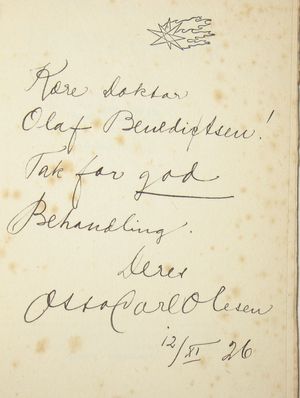 Kære Doktor
Olaf Benedictsen!
Tak for god
Behandling.
Deres
Otto Carl Olesen
12/XI 26